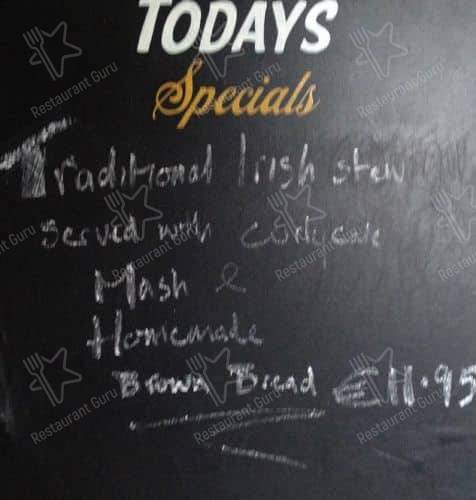 TODAYS
Specials
Traditional Irish stew
served with
Mash &
Homemade
Brown Bread €11.95
Restaurant Guru